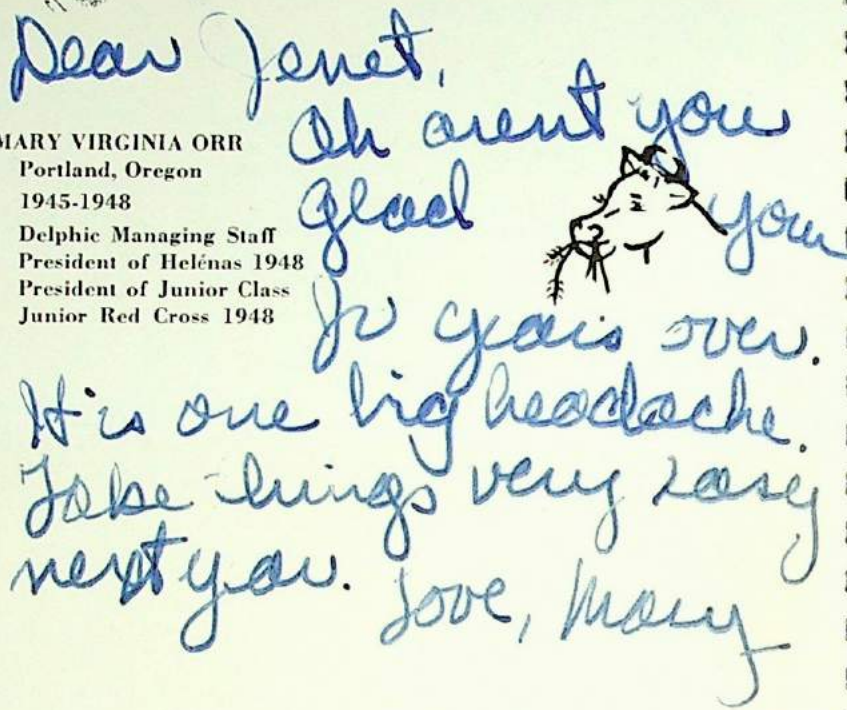 Dear Jenet,
Oh arent you
glad your
Jr years over.
It is one big headache.
Take things very easy
next year. Love, Mary
MARY VIRGINIA ORR
Portland, Oregon
1945-1948
Delphic Managing Staff
President of Helénas 1948
President of Junior Class
Junior Red Cross 1948